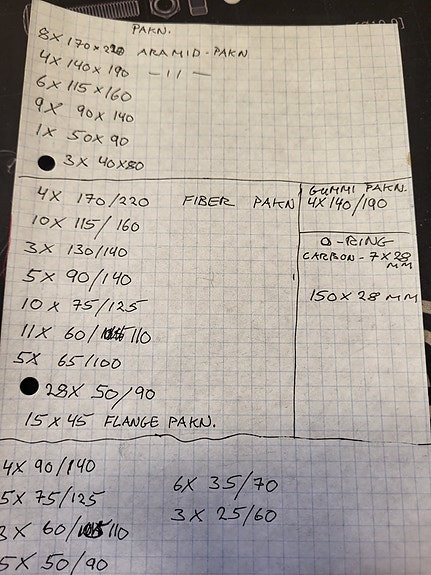 PAKN.
8X 170x220 ARAMID-PAKN
4X 140x190 - 11 -
6X 115x160
9X 90x140
1X 50X90
3X 40x80
4X 170/220 FIBER PAKN
10X 115/160
3X 130/140
5X 90/140
10 X 75/125
11X 60/110
5X 65/100
28X 50/90
15 X 45 FLANGE PAKN.
GUMMI PAKN.
4X140/190
O-RING
CARBON-7X28
MM
150X28 MM
4X 90/140
5X 75/125
3X 60/110
5X 50/90
6X 35/70
3X 25/60